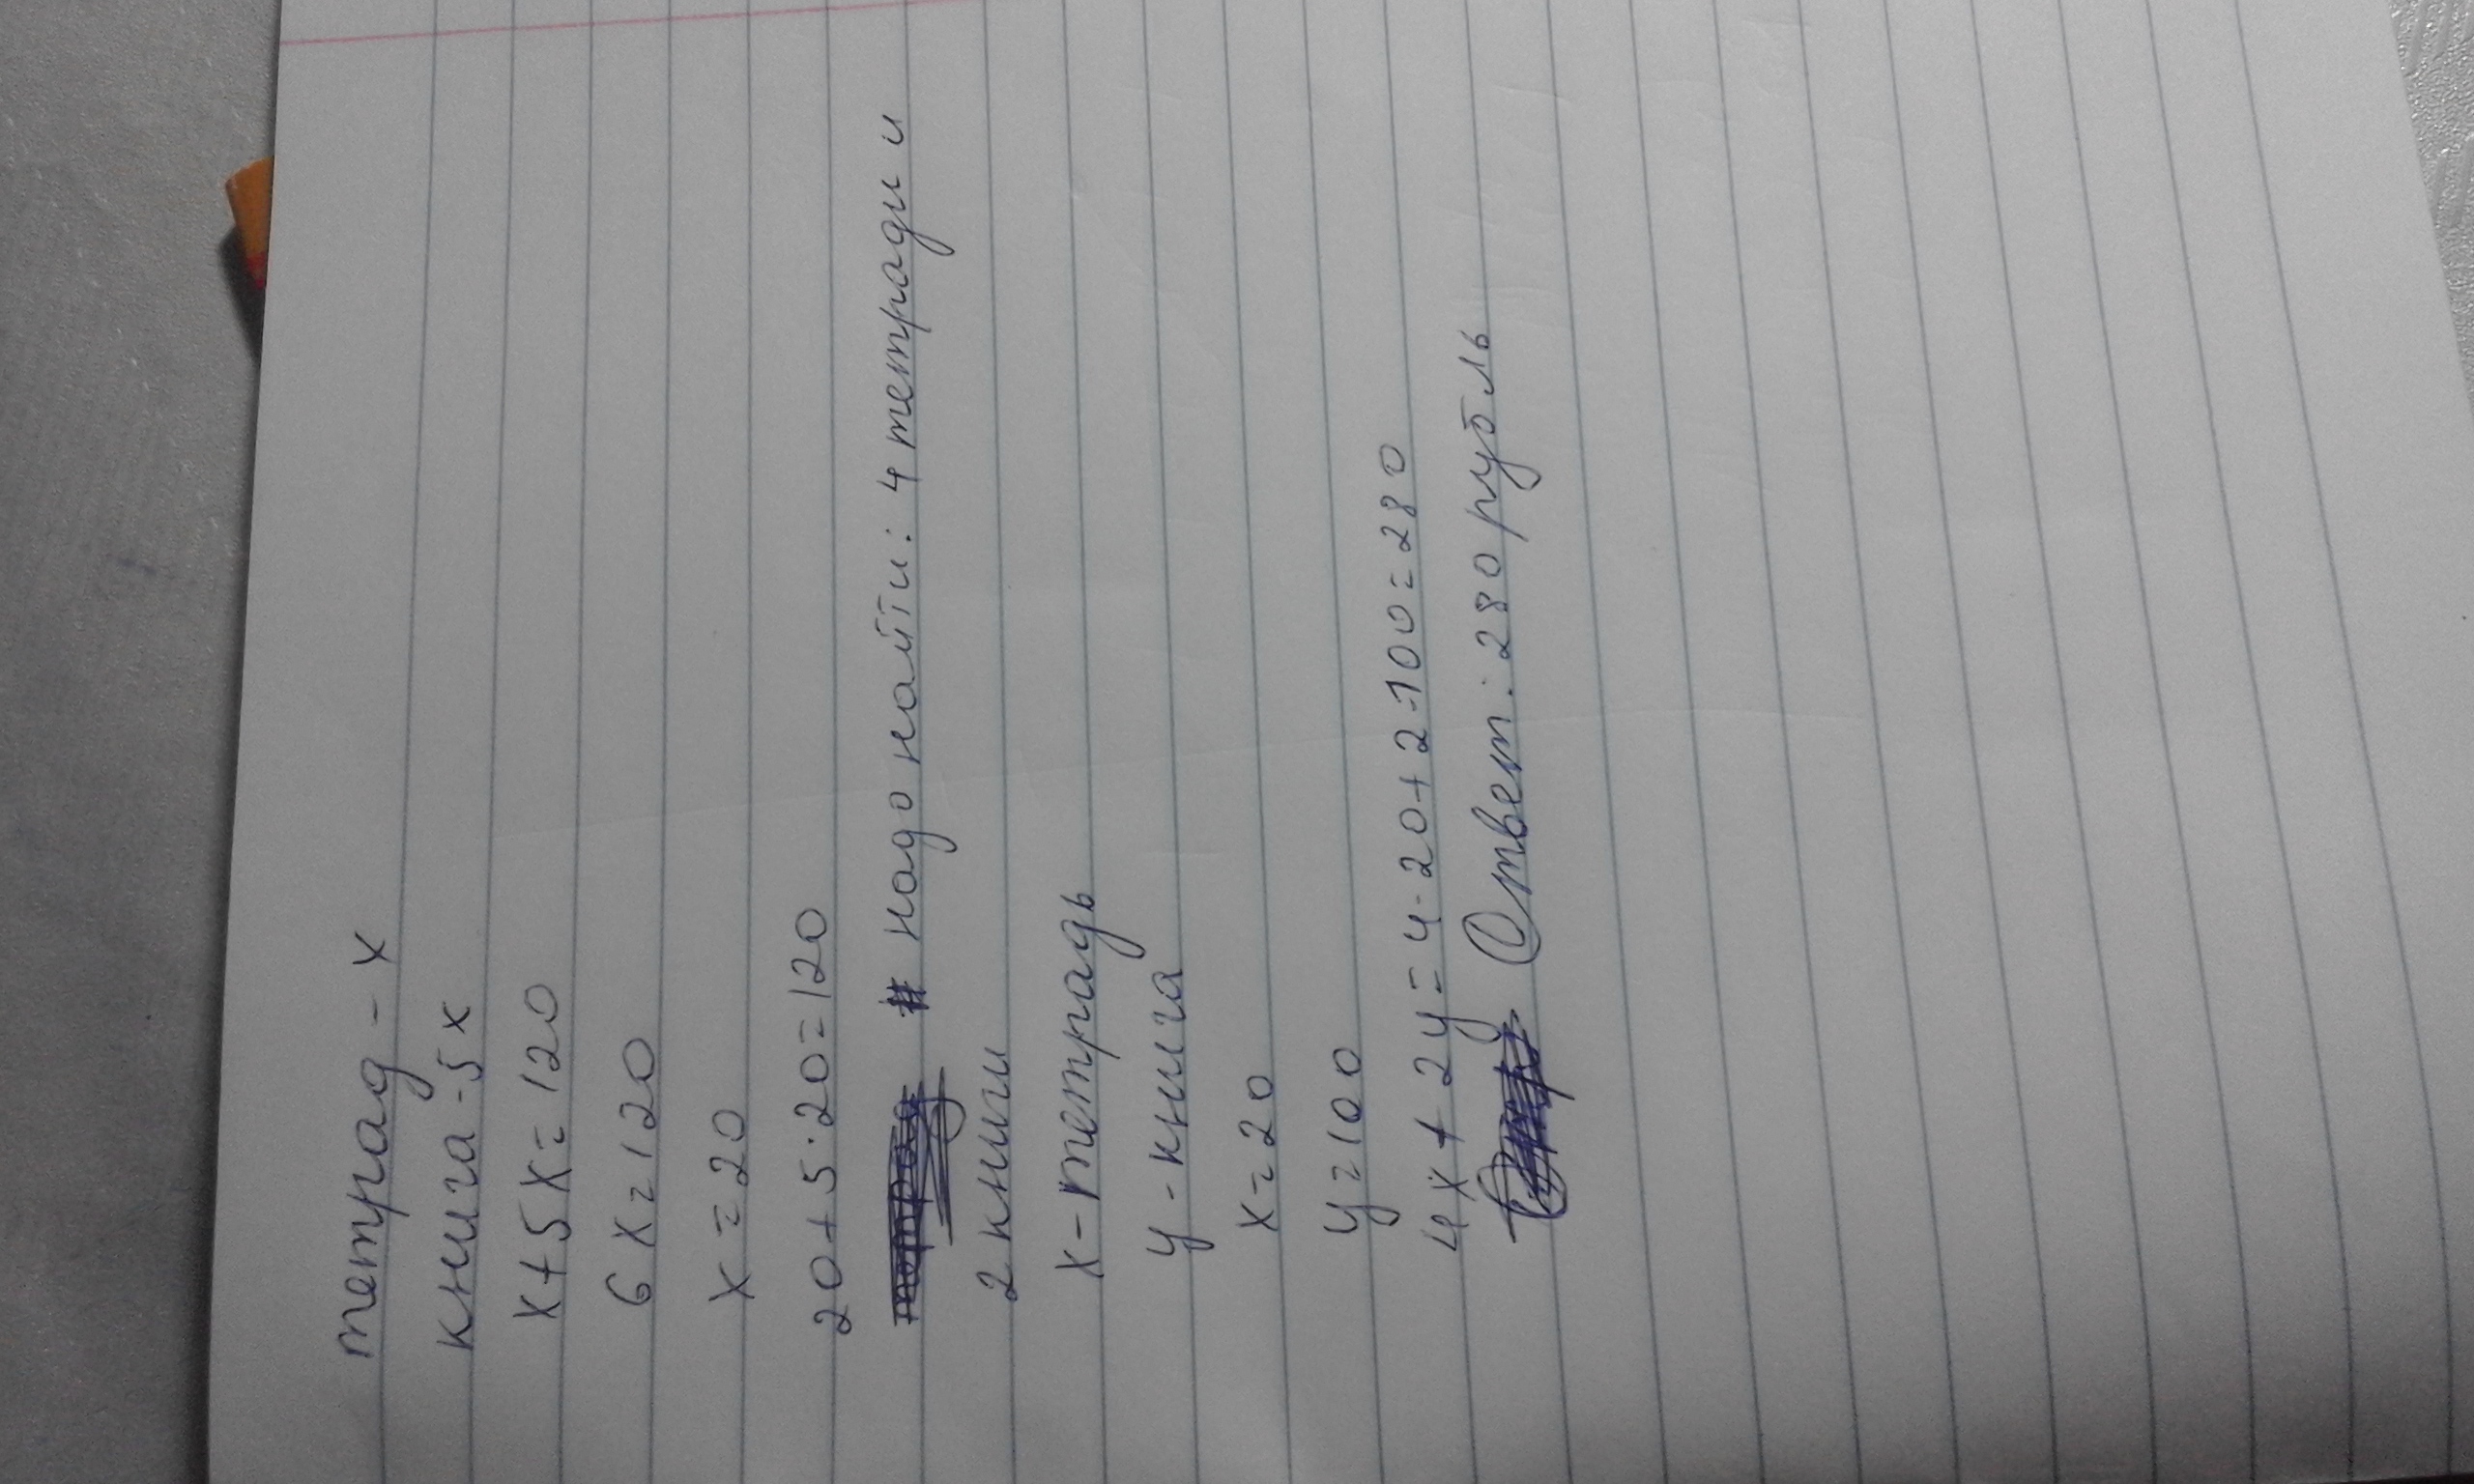 тетрад - x
книга - 5x
x+5x=120
6x=120
x=20
20+5·20=120
надо найти: 4 тетради и
2 книги
x-тетрадь
y-книга
x=20
y=100
4x+2y=4·20+2·100=280
Ответ: 280 рубль